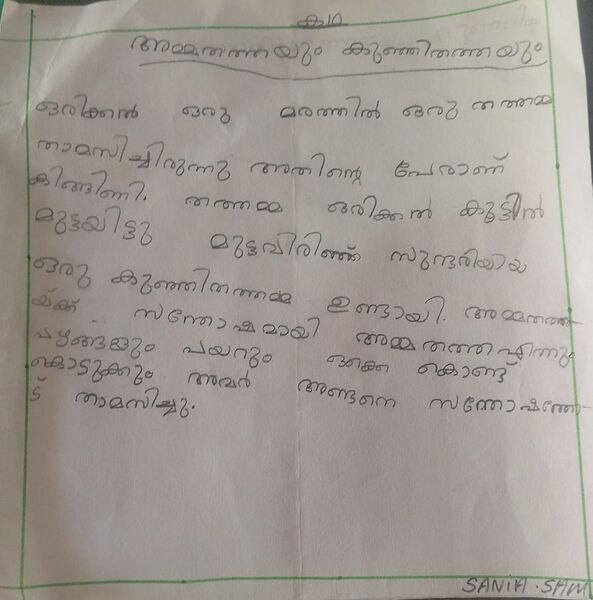 കഥ
അമ്മതത്തയും കുഞ്ഞിതത്തയും
ഒരിക്കൽ ഒരു മരത്തിൽ ഒരു തത്തമ്മ
താമസിച്ചിരുന്നു അതിന്റെ പേരാണ്
കിങ്ങിണി. തത്തമ്മ ഒരിക്കൽ കൂട്ടിൽ
മുട്ടയിട്ടു മുട്ടവിരിഞ്ഞ് സുന്ദരിയായ
ഒരു കുഞ്ഞിതത്തമ്മ ഉണ്ടായി. അമ്മതത്ത-
യ്ക്ക് സന്തോഷമായി അമ്മതത്ത എന്നും
പഴങ്ങളും പയറും ഒക്കെ കൊണ്ട്
കൊടുക്കും അവർ അങ്ങനെ സന്തോഷത്തോ-
ട് താമസിച്ചു.
SANIA.SAM